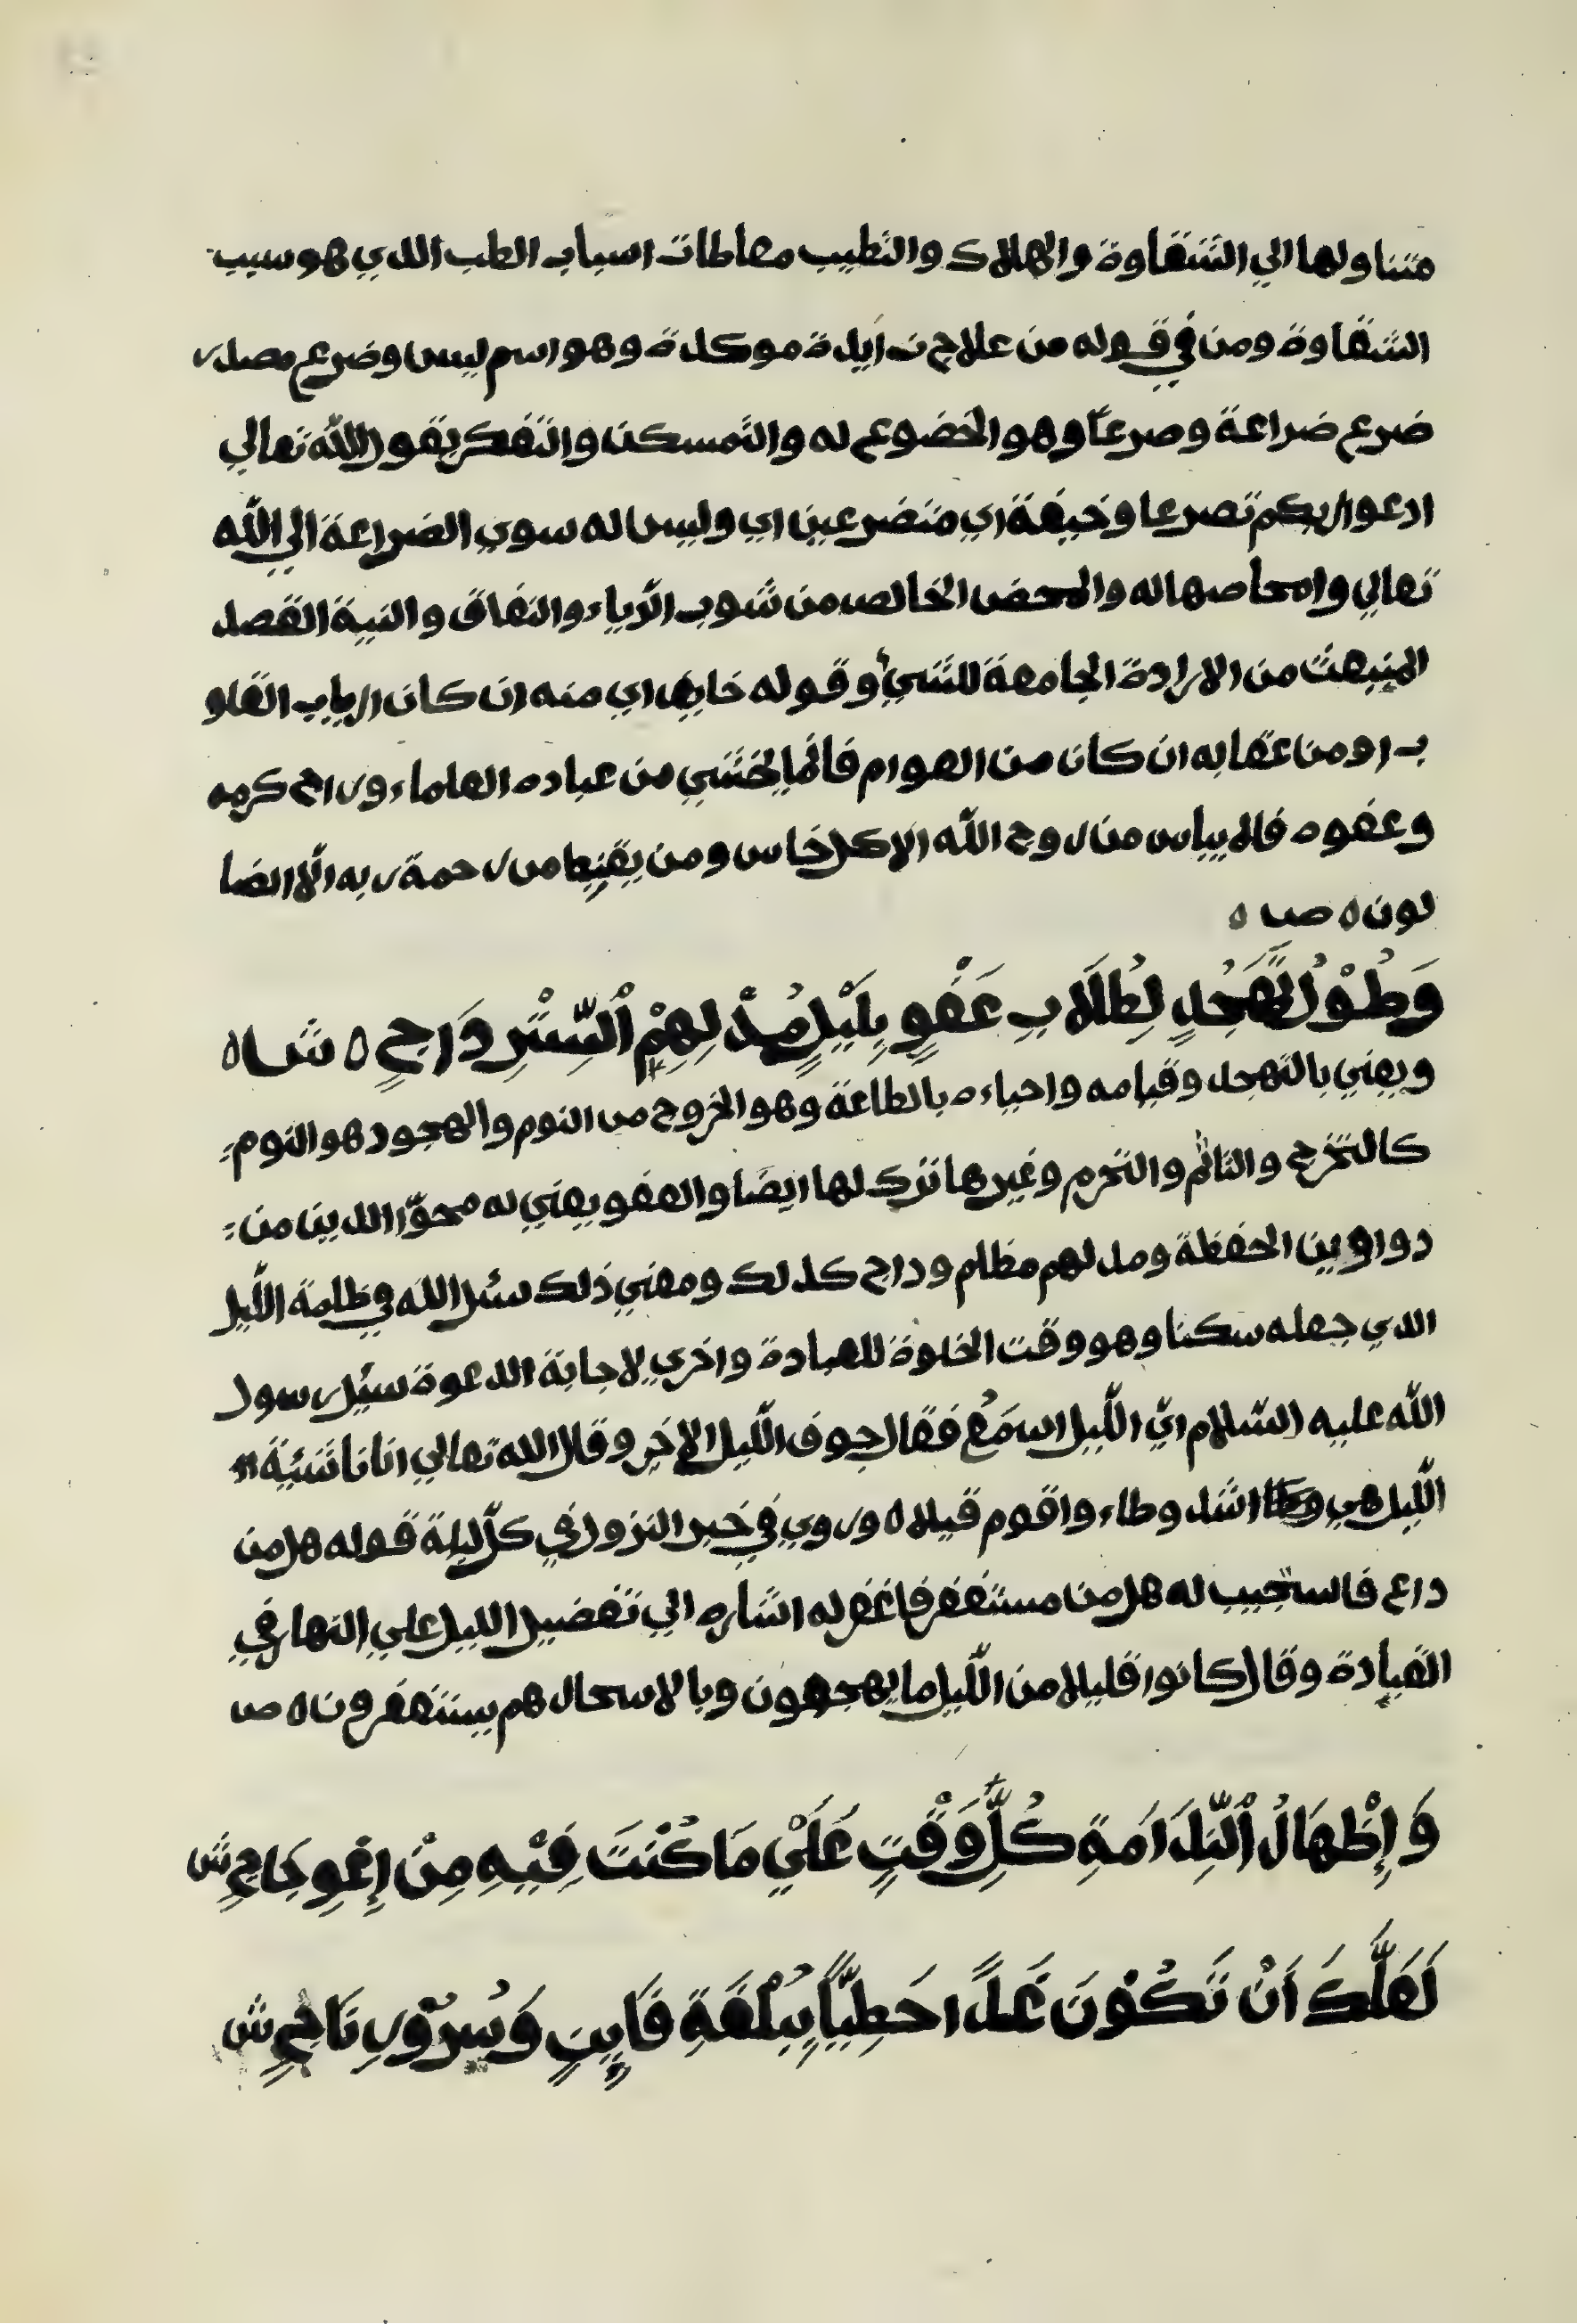 متناولها الي الشقاوة والهلاك والتطيب معاطات اسباب الطب الذي هو سبب
الشقاوة ومن في قوله من علاج زايدة موكدة وهو اسم ليس وضرع مصدر
ضرع ضراعة وضرعا وهو الخضوع له والتمسكن والتفكر يقول الله تعالي
ادعوا ربكم تضرعا وخيفة اي متضرعين اي وليس له سوي الضراعة الي الله
تعالي وامحاصها له والمحض الخالص من شوب الرّياء والنفاق والنية القصد
المنبعث من الارادة الجامعة للشيء وقوله خايف اي منه ان كان ارباب القلو
ب او من عقابه ان كان من العوام فانما يخشي من عباده العلماء وراج كرمه
وعفوه فلا يياس من روح الله الا كل خاس ومن يقنط من رحمة ربه الّا الضا
لون ٥ ص ٥
وَطُوْلُ تَهَجُّدٍ لِطُلَابِ عَفْوٍ بِلَيْلٍ مُدْلَهِمِّ اَلسِّتْرِ دَاجٍ ٥ ش ٥
ويعني بالتهجد وقيامه واحياءه بالطاعة وهو الخروج من النوم والهجود هو النوم
كالتحرج والتاثم والتحرم وغيرها ترك لها ايضا والعفو يعني له محوّ الذين من
دواوين الحفظة ومدلهم مظلم وداج كذلك ومعني ذلك سئل الله في ظلمة اللّيل
الذي جعله سكنا وهو وقت الخلوة للعبادة واخري لاجابة الدعوة سئيل رسول
الله عليه السّلام ايّ اللّيل اسمَعُ فقال جوف اللّيل الاخر وقال الله تعالي ان ناشئة
اللّيل هي اشد وطاء واقوم قيلا ٥ وروي في خبر النزول في كلّ ليلة قوله هل من
داع فاستجيب له هل من مستغفر فاغفر له اشاره الي تفضيل الليل علي النهار في
العبادة وقال كانوا قليلا من اللّيل ما يهجعون وبالاسحار هم يستغفرون ٥ ص
وَإِظْهَارُ اَلنَّدَامَةِ كُلَّ وَقْتٍ عَلَيْ مَا كُنْتَ فِيْهِ مِنْ اِعْوِجَاجٍ ش
لَعَلَّكَ اَنْ تَكُوْنَ غَدًا حَظِيًّا بِبُلْغَةِ فَايِزٍ وَسُرُوْرِ نَاجٍ ش